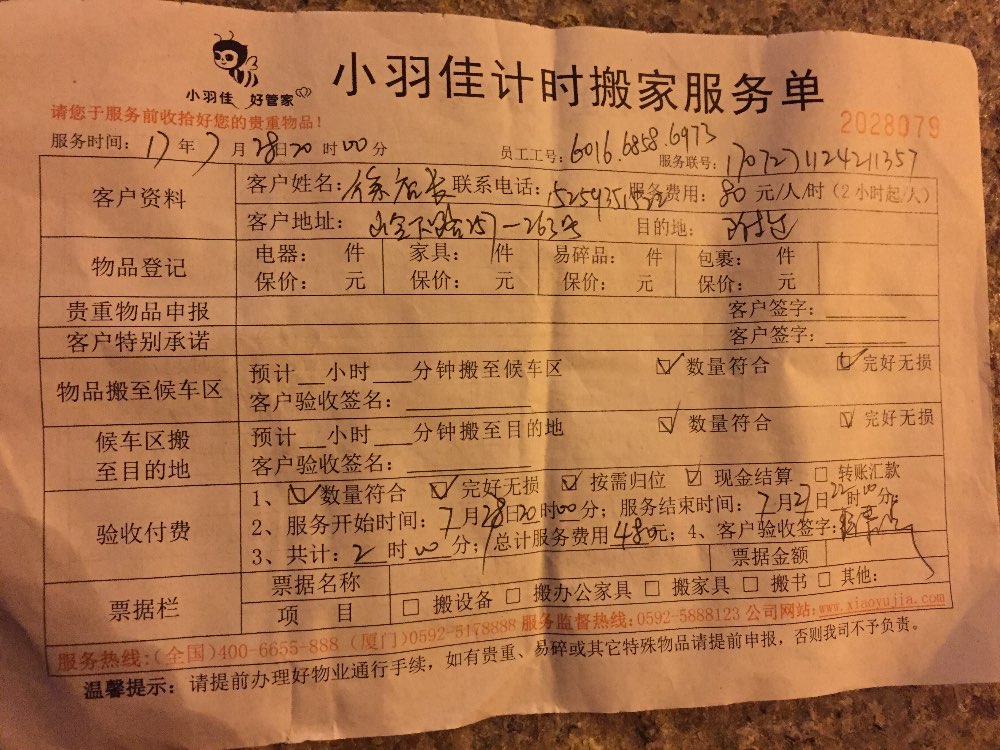 小羽佳 好管家
小羽佳计时搬家服务单
请您于服务前收拾好您的贵重物品!
2028079
服务时间: 17年7月28日20时00分 员工工号: 6016.6858.6973 服务联号: 170727112421357
客户资料 客户姓名: 联系电话: 服务费用: 80元/人/时(2小时起/人)
客户地址: 目的地: 附近
物品登记 电器: 件 家具: 件 易碎品: 件 包裹: 件
保价: 元 保价: 元 保价: 元 保价: 元
贵重物品申报 客户签字:
客户特别承诺 客户签字:
物品搬至候车区 预计__小时___分钟搬至候车区 ☑数量符合 ☑完好无损
客户验收签名:
候车区搬至目的地 预计__小时___分钟搬至目的地 ☑数量符合 ☑完好无损
客户验收签名:
验收付费 1、☑数量符合 ☑完好无损 ☑按需归位 ☑现金结算 □转账汇款
2、服务开始时间: 7月28日20时00分; 服务结束时间: 7月27日22时00分;
3、共计: 2时00分; 总计服务费用480元; 4、客户验收签字:
票据栏 票据名称 票据金额
项 目 □搬设备 □搬办公家具 □搬家具 □搬书 □其他:
服务热线:(全国)400-6655-888 (厦门)0592-5178888 服务监督热线:0592-5888123 公司网站:www.xiaoyujia.com
温馨提示: 请提前办理好物业通行手续,如有贵重、易碎或其它特殊物品请提前申报,否则我司不予负责。